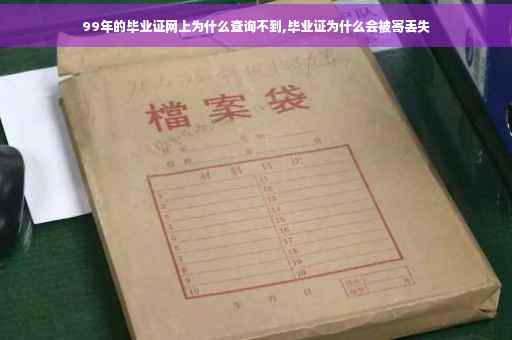 99年的毕业证网上为什么查询不到,毕业证为什么会被寄丢失
檔案袋
材料目次
1 11
2 12
3 13
4 14
5 15
6 16
7 17
8 18
9 19
10 20
年 月 日